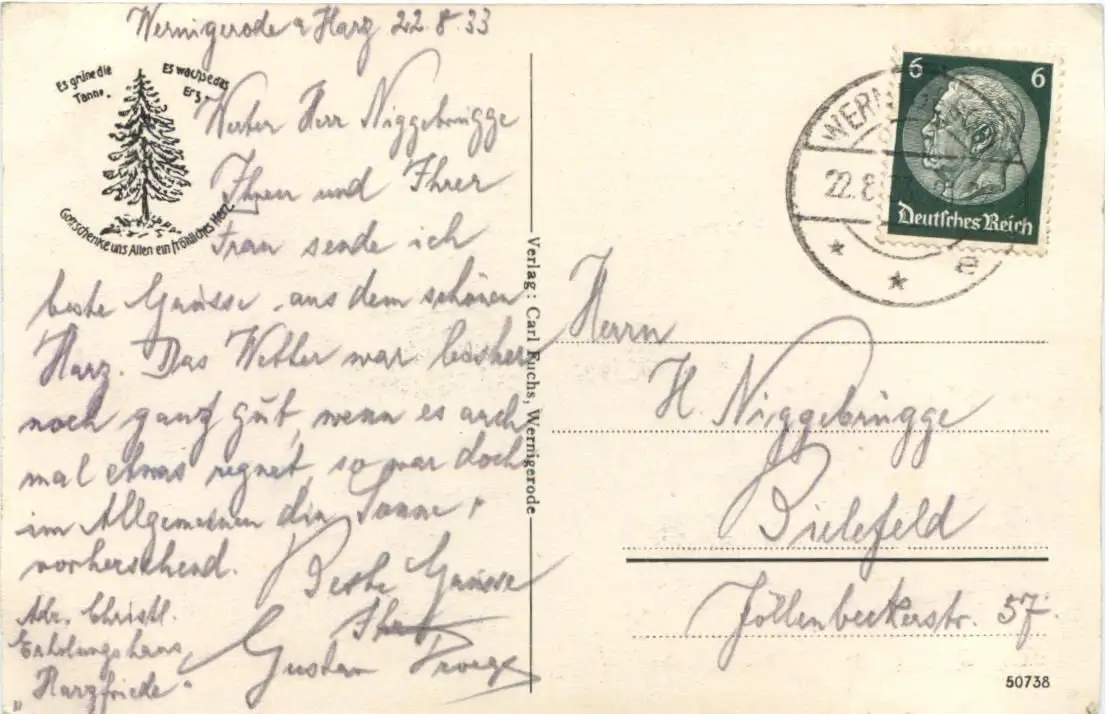 Wernigerode a Harz 22.8.33
Es grüne die
Tanne.
Es wachse das
Erz.
Gott schenke uns Allen ein fröhliches Herz.
Werter Herr Niggebrügge
Ihnen und Ihrer
Frau sende ich
beste Grüsse aus dem schönen
Harz. Das Wetter war bisher
noch ganz gut, wenn es auch
mal etwas regnet, so war doch
im Allgemeinen die Sonne
vorherschend.
Beste Grüsse
Ihr
Gustav
Adr. Christl.
Erholungshaus
"Harzfriede"
Verlag: Carl Fuchs, Wernigerode
6 6
Deutsches Reich
22.8.
Herrn
H. Niggebrügge
Bielefeld
Jöllenbeckerstr. 57.
50738